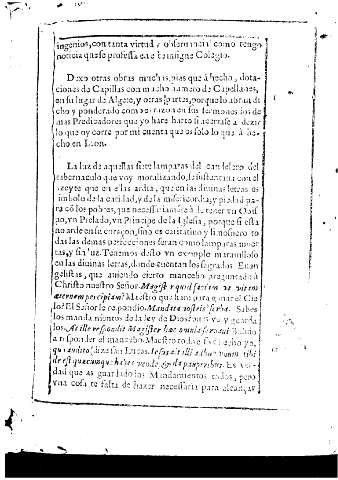 ingenios, con tanta virtud y obseruancia como tengo
noticia que se professa en este insigne Colegio.
Dexo otras obras muchas, pias que à hecho, dota
ciones de Capillas con mucho numero de Capellanes,
en su lugar de Algete, y otras partes, porque lo abran di
cho y ponderado con en sus sermones los de
mas Predicadores que yo hare harto si acertare a dezir
lo que oy corre por mi cuenta que es solo lo que à he-
cho en Leon.
La luz de aquellas siete lamparas del candelero del
tabernaculo que voy moralizando, se sustentaua con el
azeyte que en ellas ardia, que en las diuinas letras es
simbolo de la caridad, y de la misericordia, y piedad pa
ra cõ los pobres, que necessariamẽte à de tener vn Obis
po, vn Prelado, vn Principe de la Iglesia, porque si esta
no arde en su coraçon, sino es caritatiuo y limosnero to
das las demas perfecciones seran como lamparas muer
tas, y sin luz. Tenemos desto vn exemplo marauilloso
en las diuinas letras, donde cuentan los sagrados Euan
gelistas, que auiendo cierto mancebo preguntado à
Christo nuestro Señor. Magister quid faciam vt vitam
æternam percipiam? Maestro que hare para ganar el Cie
lo? El Señor le respondio. Mandata nostis? serba. Sabes
los mandamientos de la ley de Dios? pues ve y guarda
los. At ille respondit Magister hac omnia seruaui
a responder el mancebo. Maestro todo esso è hecho yo,
quo audito (dize san Lucas. Iesus ait illi adhuc vnum tibi
de est quæcumque habes vende, & da pauperibus. Es ver
dad que as guardado los Mandamientos todos, pero
vna cosa te falta de hazer necessaria para alcançar